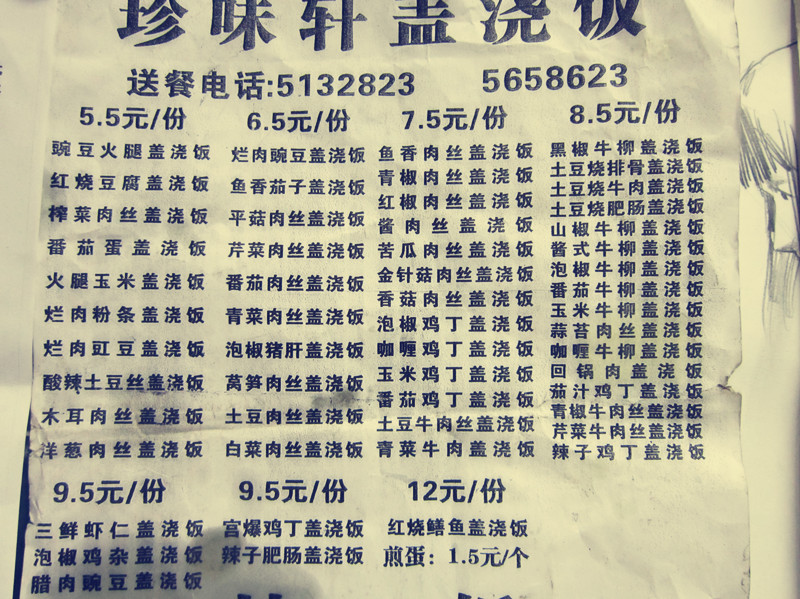 珍味轩盖浇饭
送餐电话:5132823 5658623
5.5元/份
豌豆火腿盖浇饭
红烧豆腐盖浇饭
榨菜肉丝盖浇饭
番茄蛋盖浇饭
火腿玉米盖浇饭
烂肉粉条盖浇饭
烂肉豇豆盖浇饭
酸辣土豆丝盖浇饭
木耳肉丝盖浇饭
洋葱肉丝盖浇饭
6.5元/份
烂肉豌豆盖浇饭
鱼香茄子盖浇饭
平菇肉丝盖浇饭
芹菜肉丝盖浇饭
番茄肉丝盖浇饭
青菜肉丝盖浇饭
泡椒猪肝盖浇饭
莴笋肉丝盖浇饭
土豆肉丝盖浇饭
白菜肉丝盖浇饭
7.5元/份
鱼香肉丝盖浇饭
青椒肉丝盖浇饭
红椒肉丝盖浇饭
酱肉丝盖浇饭
苦瓜肉丝盖浇饭
金针菇肉丝盖浇饭
香菇肉丝盖浇饭
泡椒鸡丁盖浇饭
咖喱鸡丁盖浇饭
玉米鸡丁盖浇饭
番茄鸡丁盖浇饭
土豆牛肉丝盖浇饭
青菜牛肉盖浇饭
8.5元/份
黑椒牛柳盖浇饭
土豆烧排骨盖浇饭
土豆烧牛肉盖浇饭
土豆烧肥肠盖浇饭
山椒牛柳盖浇饭
酱式牛柳盖浇饭
泡椒牛柳盖浇饭
番茄牛柳盖浇饭
玉米牛柳盖浇饭
蒜苔肉丝盖浇饭
咖喱牛柳盖浇饭
回锅肉盖浇饭
茄汁鸡丁盖浇饭
青椒牛肉丝盖浇饭
芹菜牛肉丝盖浇饭
辣子鸡丁盖浇饭
9.5元/份
三鲜虾仁盖浇饭
泡椒鸡杂盖浇饭
腊肉豌豆盖浇饭
9.5元/份
宫爆鸡丁盖浇饭
辣子肥肠盖浇饭
12元/份
红烧鳝鱼盖浇饭
煎蛋：1.5元/个